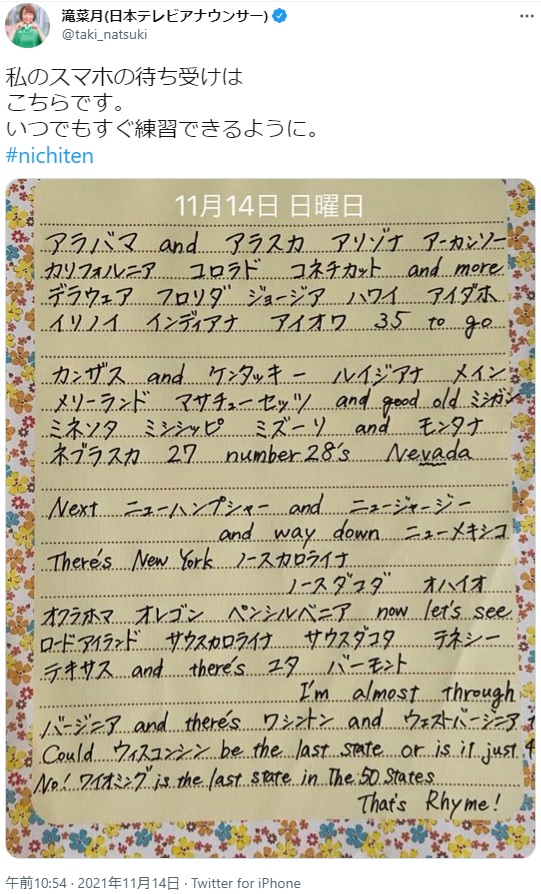 滝菜月(日本テレビアナウンサー)
@taki_natsuki
私のスマホの待ち受けは
こちらです。
いつでもすぐ練習できるように。
#nichiten
11月14日 日曜日
アラバマ and アラスカ アリゾナ アーカンソー
カリフォルニア コロラド コネチカット and more
デラウェア フロリダ ジョージア ハワイ アイダホ
イリノイ インディアナ アイオワ 35 to go
カンザス and ケンタッキー ルイジアナ メイン
メリーランド マサチューセッツ and good old ミシガン
ミネソタ ミシシッピ ミズーリ and モンタナ
ネブラスカ 27 number 28's Nevada
Next ニューハンプシャー and ニュージャージー
and way down ニューメキシコ
There's New York ノースカロライナ
ノースダコダ オハイオ
オクラホマ オレゴン ペンシルベニア now let's see
ロードアイランド サウスカロライナ サウスダコタ テネシー
テキサス and there's ユタ バーモント
I'm almost through
バージニア and there's ワシントン and ウェストバージニア
Could ウィスコンシン be the last state or is it just 4
No! ワイオミング is the last state in The 50 States
That's Rhyme!
午前10:54 · 2021年11月14日 · Twitter for iPhone